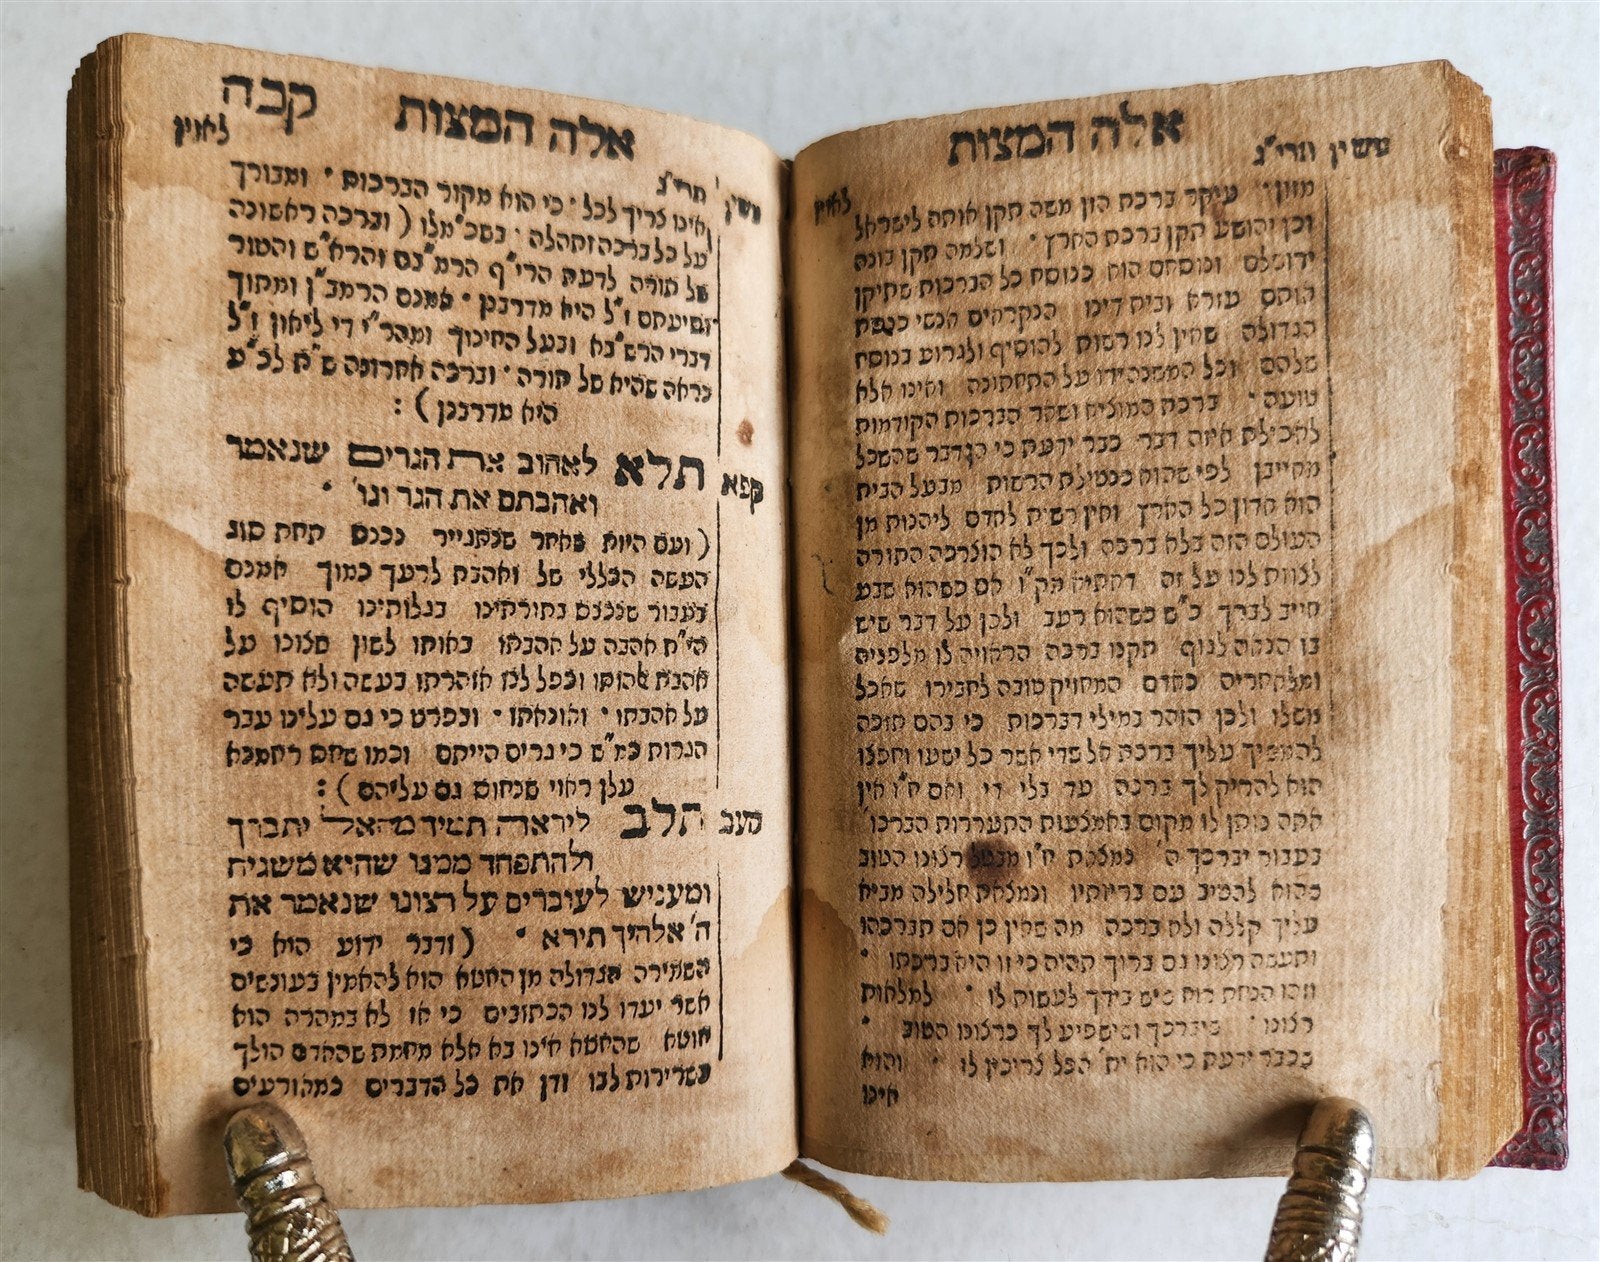 אלה המצות
עשין תרי"ג
לאוין
מזון· עיקר ברכת הזן משה תקן אותה לישראל
וכן יהושע תקן ברכת הארץ· ושלמה תקן בונה
ירושלם ונוסחם הוא כנוסח כל הברכות שתיקן
אותם עזרא ובית דינו הנקראים אנשי כנסת
הגדולה שאין לנו רשות להוסיף ולגרוע בנוסח
שלהם וכל המשנה ידו על התחתונה ואינו אלא
טועה· ברכת המוציא ושאר הברכות הקודמות
לאכילת איזה דבר כבר ידעת כי הוא דבר שהשכל
מחייבן לפי שהוא כנטילת הרשות מבעל הבית
הוא אדון כל הארץ ואין רשות לאדם ליהנות מן
העולם הזה בלא ברכה ולכך לא הוצרכה התורה
לצוות לנו על זה דאתיא מק"ו אם כשהוא שבע
חייב לברך כ"ש כשהוא רעב ולכן על דבר שיש
בו הנאה לגוף תקנו ברכה הראויה לו מלפניה
ומלאחריה כאדם המחזיק טובה לחבירו שאכל
משלו ולכן הזהר במילי דברכות כי בהם תזכה
להמשיך עליך ברכת אל שדי אשר כל ישעו וחפצו
הוא להריק לך ברכה עד בלי די ואם ח"ו אין
אתה נותן לו מקום באמצעות התעררות הברכו'
בעבור יברכך ה' נמצאת ח"ו מבטל רצונו הטוב
שהוא להטיב עם בריותיו ונמצאת חלילה מביא
עליך קללה ולא ברכה מה שאין כן אם תברכהו
ותעשה רצונו גם ברוך תהיה כי זו היא ברכתו·
וזהו הנחת רוח שיש בידך לעשות לו· למלאות
רצונו· שיברכך ושישפיע לך כרצונו הטוב·
שכבר ידעת כי הוא ית' הכל צריכין לו· והוא
אינו
אלה המצות קכה
עשין תרי"ג לאוין
אינו צריך לכל· כי הוא מקור הברכות· ומבורך
על כל ברכה ותהלה· בשכ"מלו (וברכה ראשונה
של תורה לדעת הרי"ף הרמ"בם והרא"ש והטור
וסיעתם ז"ל היא מדרבנן· אמנם הרמב"ן ומתוך
דברי הרש"בא ובעל החינוך ומהר"י די ליאון ז"ל
נראה שהיא של תורה· וברכה אחרונה ש"ח לכ"ע
היא מדרבנן):
קפא תלא לאהוב את הגרים שנאמר
ואהבתם את הגר וגו'·
(ועם היות שאחר שנתגייר נכנס תחת סוג
העשה הכללי של ואהבת לרעך כמוך אמנם
בעבור שנכנס בתורתינו בגלותינו הוסיף לו
הי"ת אהבה על אהבתו באותו לשון שצונו על
אהבת אותו וכפל לנו אזהרתו בעשה ולא תעשה
על אהבתו· והונאתו· ובפרט כי גם עלינו עבר
הגרות כמ"ש כי גרים הייתם וכמו שחס רחמנא
עלן ראוי שנחוס גם עליהם):
תלב ליראה תמיד מהאל יתברך
ולהתפחד ממנו שהיא משגיח
ומעניש לעוברים על רצונו שנאמר את
ה' אלהיך תירא· (ודבר ידוע הוא כי
השמירה הגדולה מן החטא הוא להאמין בעונשים
אשר יעדו לנו הכתובים כי או לא במהרה הוא
חוטא שהחטא אינו בא אלא מחמת שהאדם הולך
בשרירות לבו ודן את כל הדברים כמאורעים